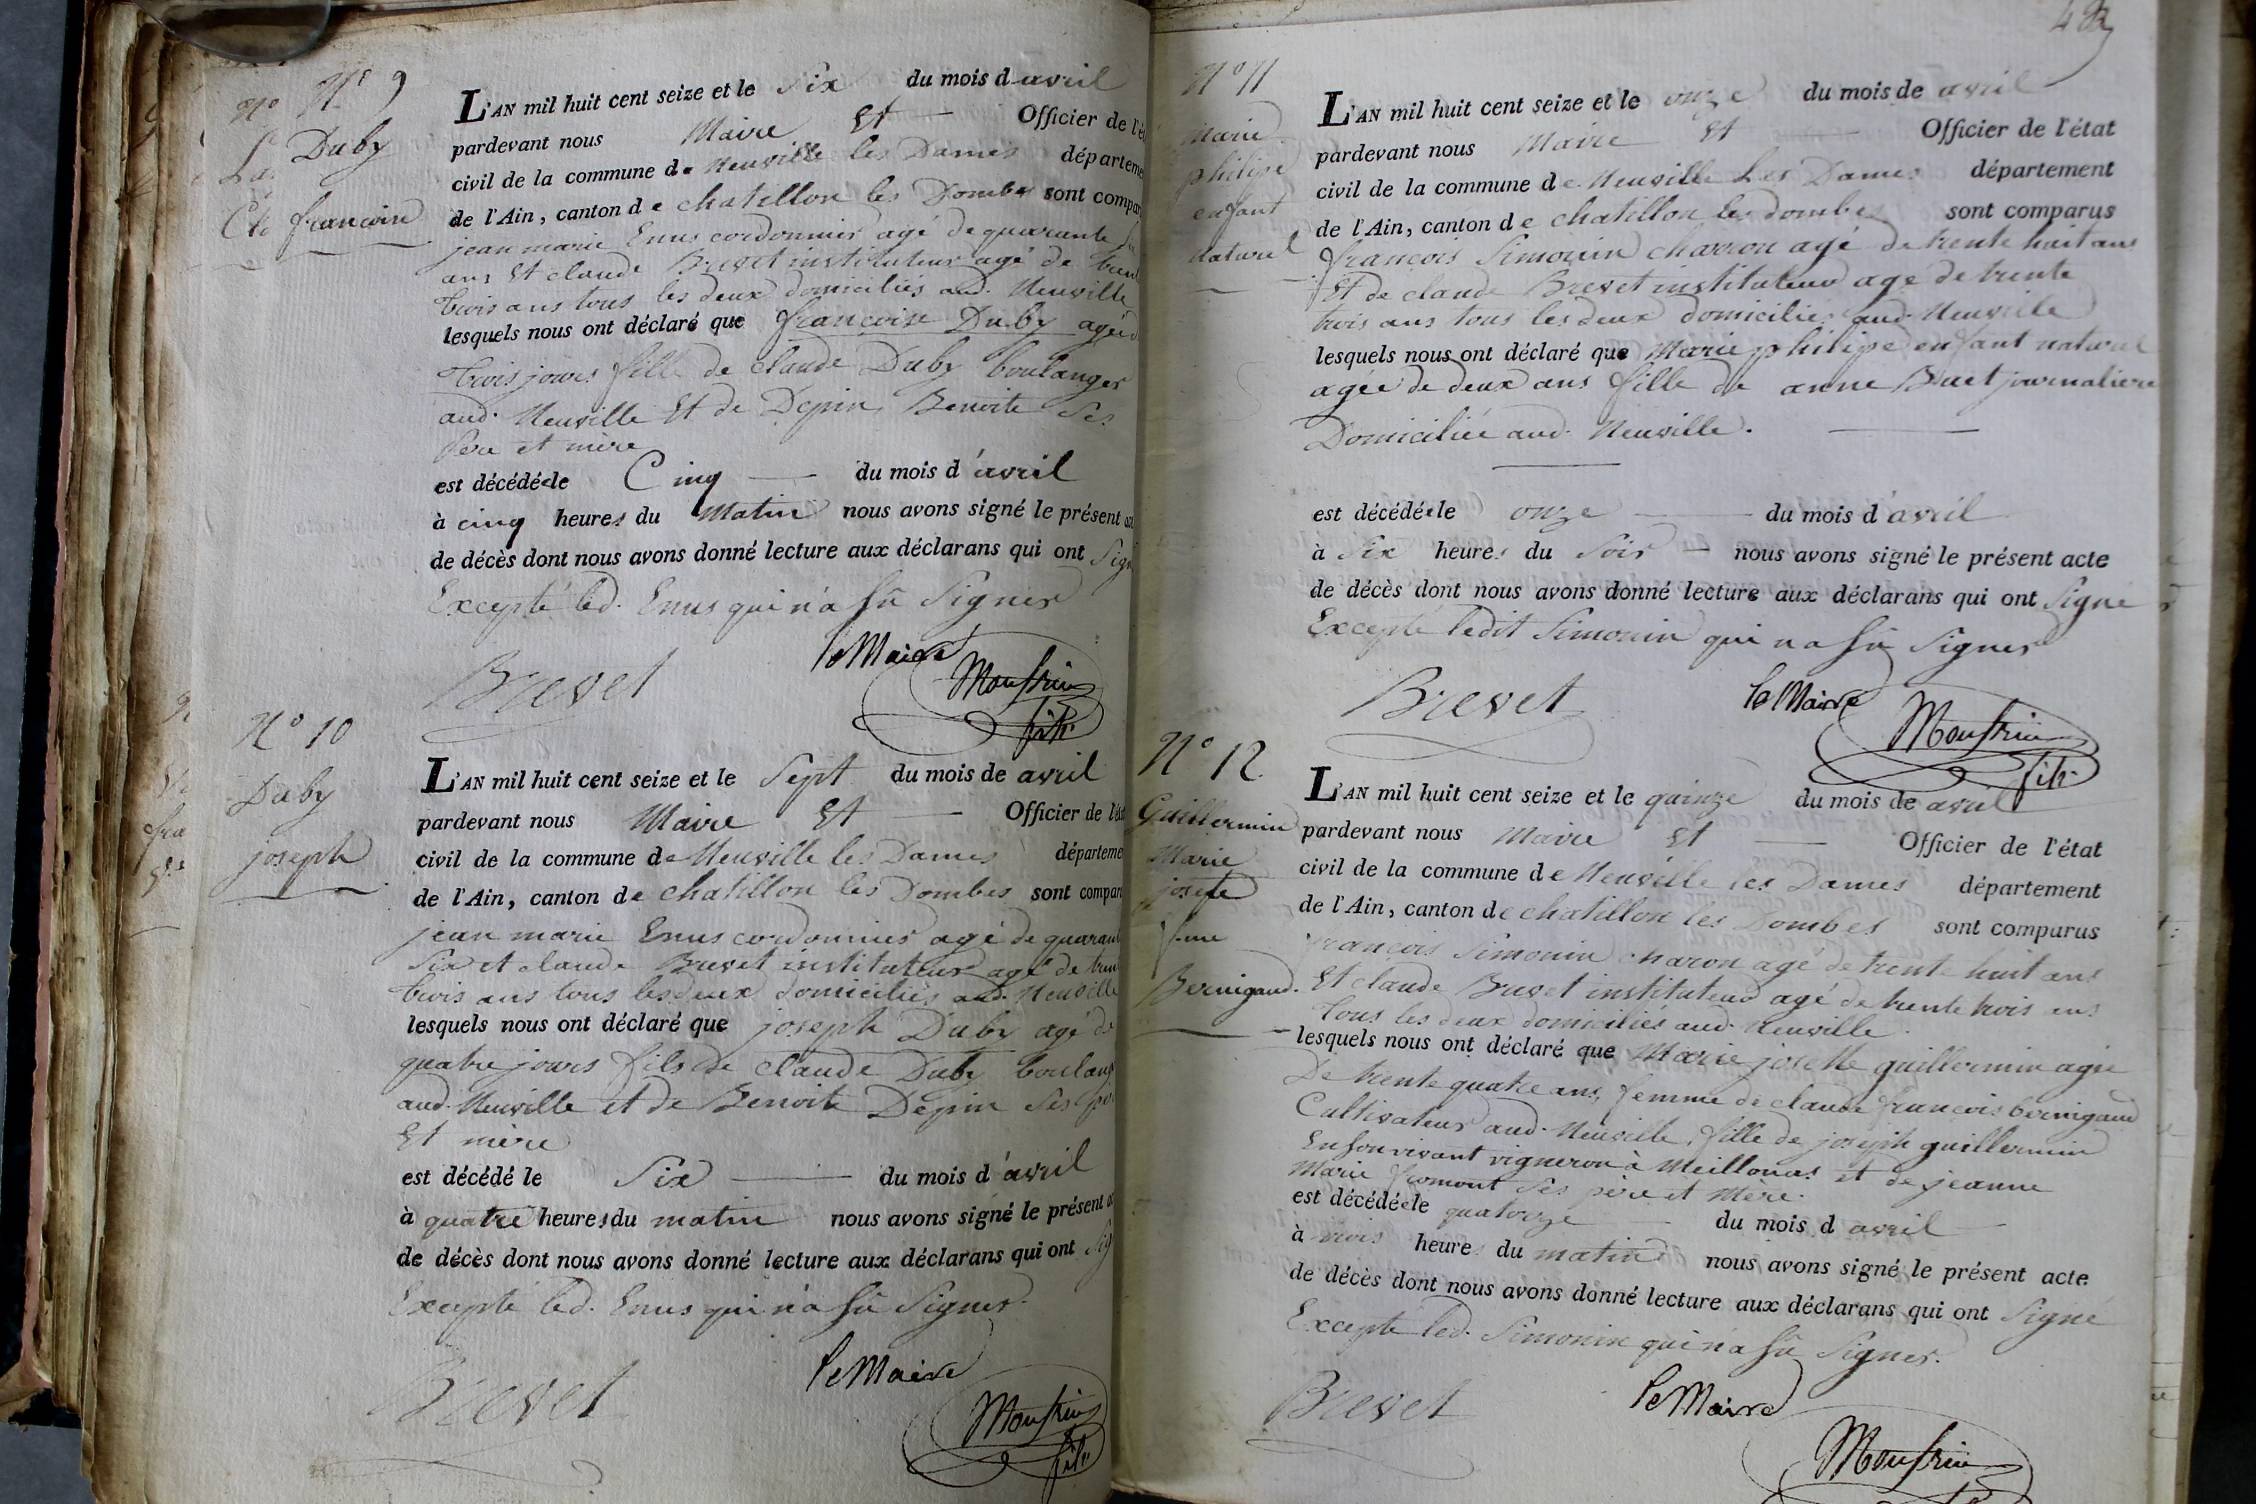 N° 9
Duby
françoise
L'AN mil huit cent seize et le Six du mois d avril
pardevant nous Maire Et Officier de l'é
civil de la commune de Neuville les Dames départeme
de l'Ain, canton de chatillon les Dombes sont compar
jean marie Enus cordonnier agé de quarante
ans Et claude Brevet instituteur agé de
trois ans tous les deux domiciliés aud. Neuville
lesquels nous ont déclaré que françoise Duby agée
trois jours fille de claude Duby boulanger
aud. Neuville Et de Depin Benoite Ses
père et mère
est décédée le Cinq du mois d'avril
à cinq heures du Matin nous avons signé le présent
de décès dont nous avons donné lecture aux déclarans qui ont
Excepté led. Enus qui n'a sû Signer
Brevet le Maire
fils
N° 10
Duby
joseph
L'AN mil huit cent seize et le Sept du mois de avril
pardevant nous Maire Et Officier de l'é
civil de la commune de Neuville les Dames départeme
de l'Ain, canton de chatillon les Dombes sont compar
jean marie Enus cordonnier agé de
Six et claude Brevet instituteur agé de
trois ans tous les deux domiciliés aud. Neuville
lesquels nous ont déclaré que joseph Duby agé de
quatre jours fils de claude Duby
aud. Neuville et de Benoite Depin Ses
Et mère
est décédé le Six du mois d'avril
à quatre heures du matin nous avons signé le présent
de décès dont nous avons donné lecture aux déclarans qui ont
Excepté led. Enus qui n'a sû Signer.
Brevet le Maire
fils
N° 11
Marie
philipe
enfant
naturel
L'AN mil huit cent seize et le onze du mois de avril
pardevant nous Maire Et Officier de l'état
civil de la commune de Neuville Les Dames département
de l'Ain, canton de chatillon les dombes sont comparus
françois Simonin charron agé de trente huit ans
Et de claude Brevet instituteur agé de trente
trois ans tous les deux domiciliés aud. Neuville
lesquels nous ont déclaré que Marie philipe enfant naturel
agée de deux ans fille de anne journaliere
Domiciliée aud. Neuville.
est décédée le onze du mois d'avril
à Six heures du Soir nous avons signé le présent acte
de décès dont nous avons donné lecture aux déclarans qui ont Signé
Excepté ledit Simonin qui n a sû Signer
Brevet le Maire
fils
N° 12
Guillermin
Marie
josete
Bernigaud.
L'AN mil huit cent seize et le quinze du mois de avril
pardevant nous Maire Et Officier de l'état
civil de la commune de Neuville les Dames département
de l'Ain, canton de chatillon les Dombes sont comparus
françois Simonin charon agé de trente huit ans
Et claude Brevet instituteur agé de trente trois ans
tous les deux domiciliés aud. Neuville
lesquels nous ont déclaré que Marie josette guillermin agée
De trente quatre ans, femme de claude françois bernigaud
Cultivateur aud. Neuville, fille de joseph guillermin
En son vivant vigneron à Meillonas et de jeanne
Marie fromont Ses père et Mère.
est décédée le quatorze du mois d avril
à trois heures du matin nous avons signé le présent acte
de décès dont nous avons donné lecture aux déclarans qui ont Signé
Excepté led. Simonin qui n'a sû Signer.
Brevet le Maire